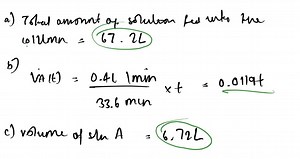 a) Total amount of solution fed into the
column = 67.2L
b)
VA(t) = 0.4L 1min × t = 0.0119t
33.6 min
c) volume of sln A = 6.72L